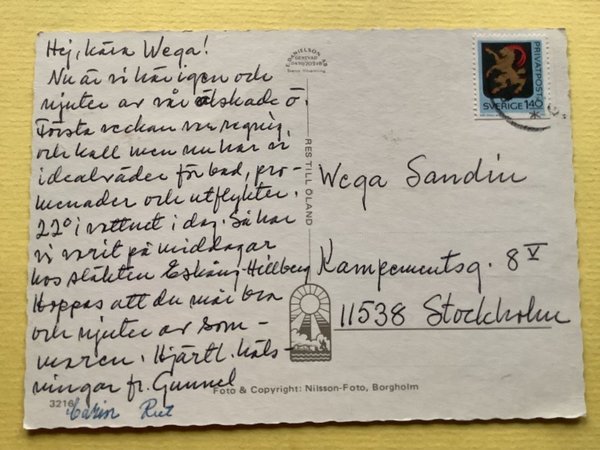 Hej, kära Wega!
Nu är vi här igen och
njuter av vår älskade ö.
Första veckan var regnig,
och kall men nu har vi
idealväder för bad, pro-
menader och utflykter.
22° i vattnet i dag. Så har
vi varit på middagar
hos släkten Hillberg
Hoppas att du mår bra
och njuter av som-
maren. Hjärtl. häls-
ningar fr. Gunnel
Carin Rut
E. DANIELSON AB
RES TILL ÖLAND
PRIVATPOST
SVERIGE 140
Wega Sandin
Kampementsg. 8 V
11538 Stockholm
Foto & Copyright: Nilsson-Foto, Borgholm
3216